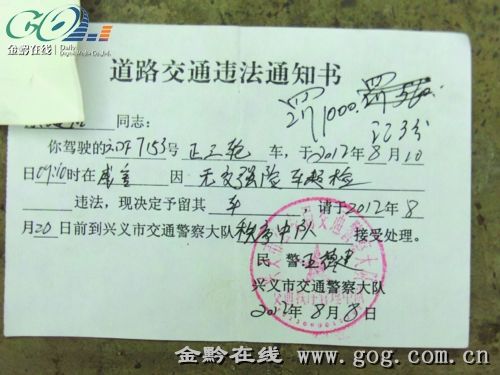 GO
金黔在线
Daily
道路交通违法通知书
罚1000.
记3分
同志:
你驾驶的 7153号 正三轮 车,于2012年8月10
日09:10时在 因 无交强险 车超检
违法,现决定予留其 车 ,请于2012年8
月20日前到兴义市交通警察大队 秩序中队 接受处理。
民 警:王
兴义市交通警察大队
2012年8月8日
金黔在线 www.gog.com.cn